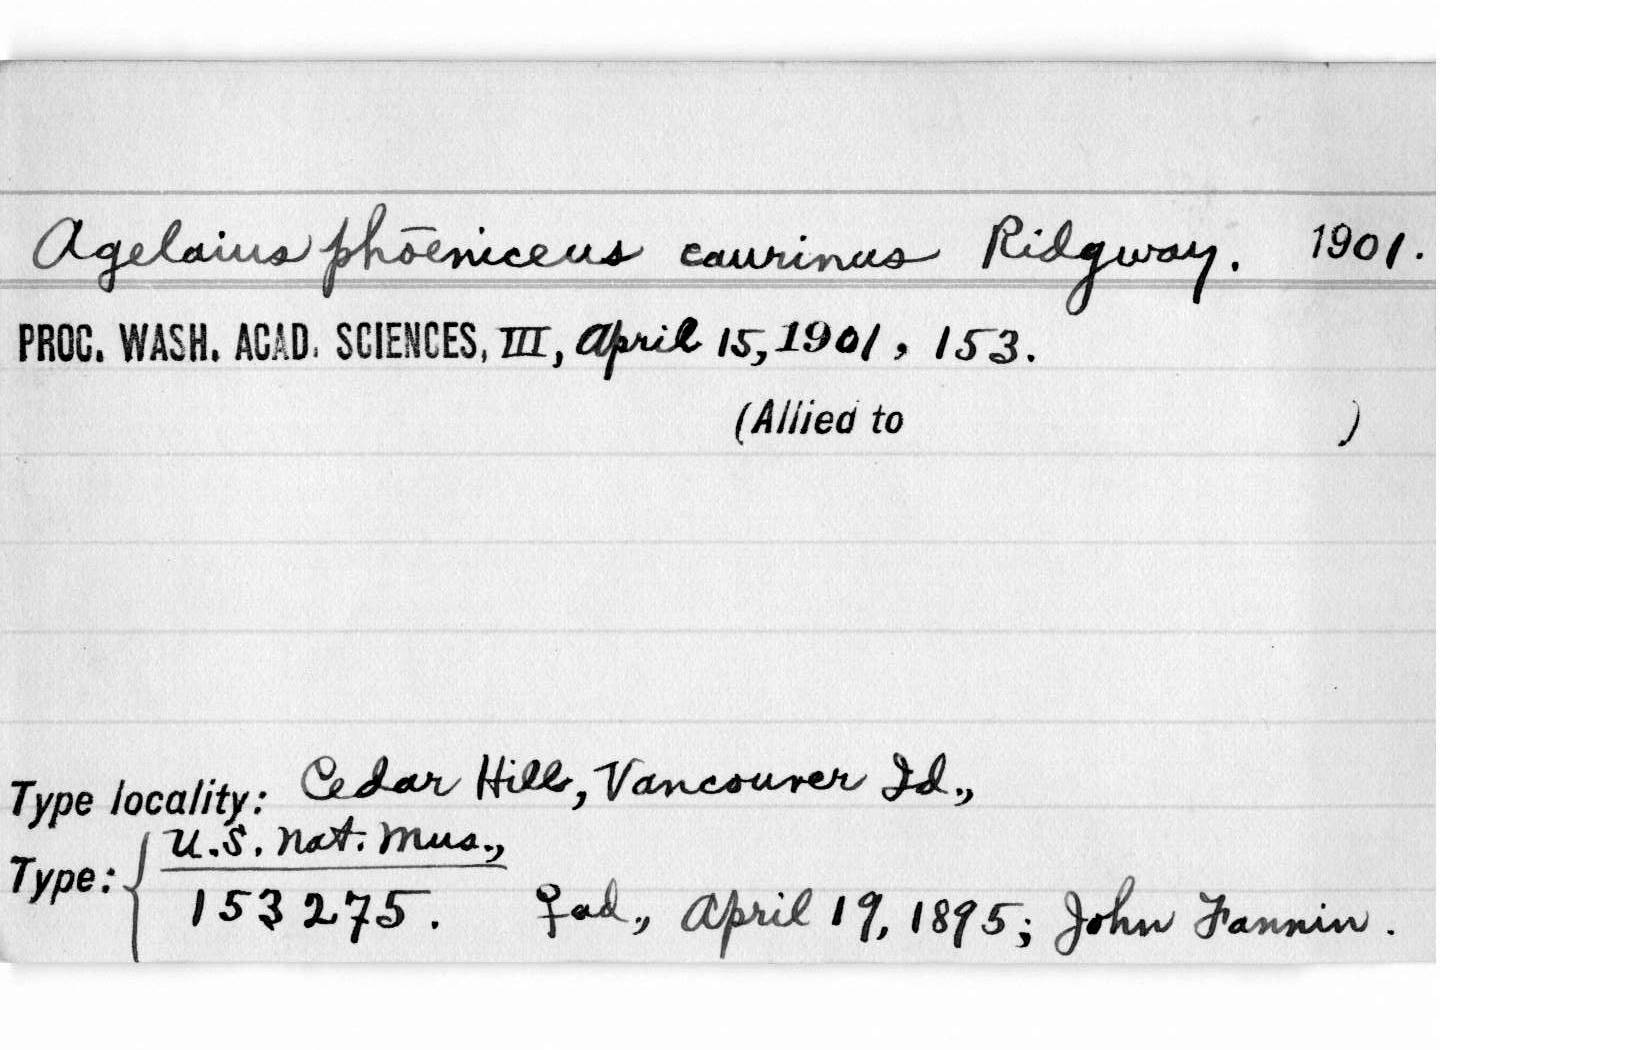 Agelaius phōeniceus caurinus Ridgway. 1901.
PROC. WASH. ACAD. SCIENCES, III, April 15, 1901, 153.
(Allied to )
Type locality: Cedar Hill, Vancouver Id.,
U.S. Nat. Mus.,
Type:
153275. ♀ ad., April 19, 1895; John Fannin.